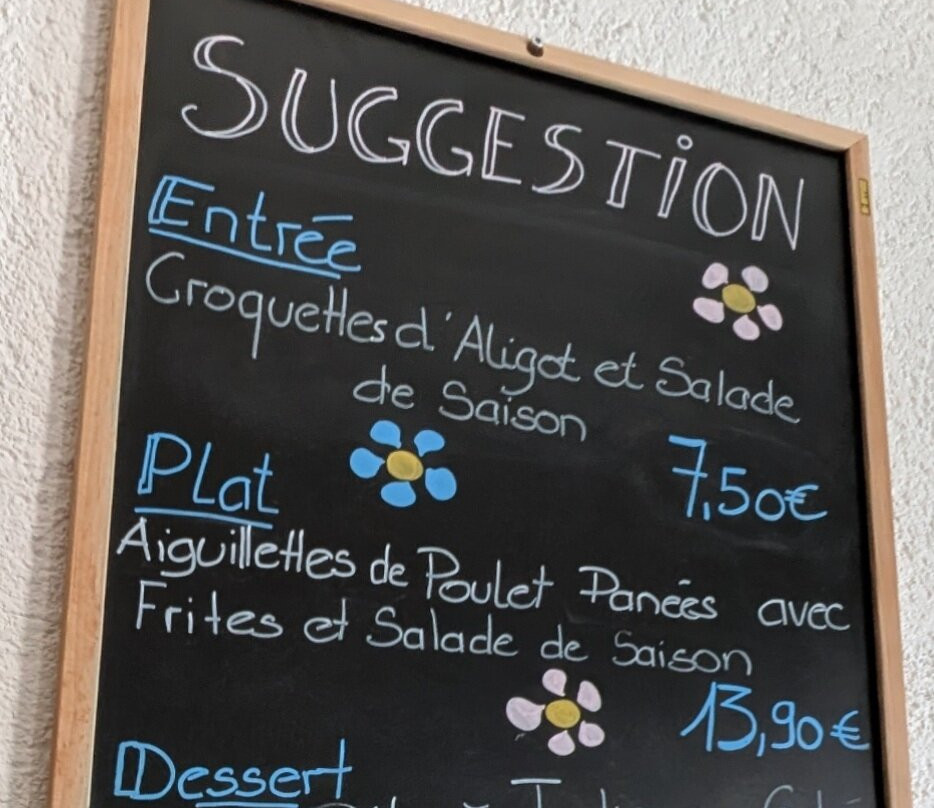 SUGGESTION
Entrée
Croquettes d'Aligot et Salade
de Saison
7,50€
PLat
Aiguillettes de Poulet Panées avec
Frites et Salade de Saison
13,90€
Dessert